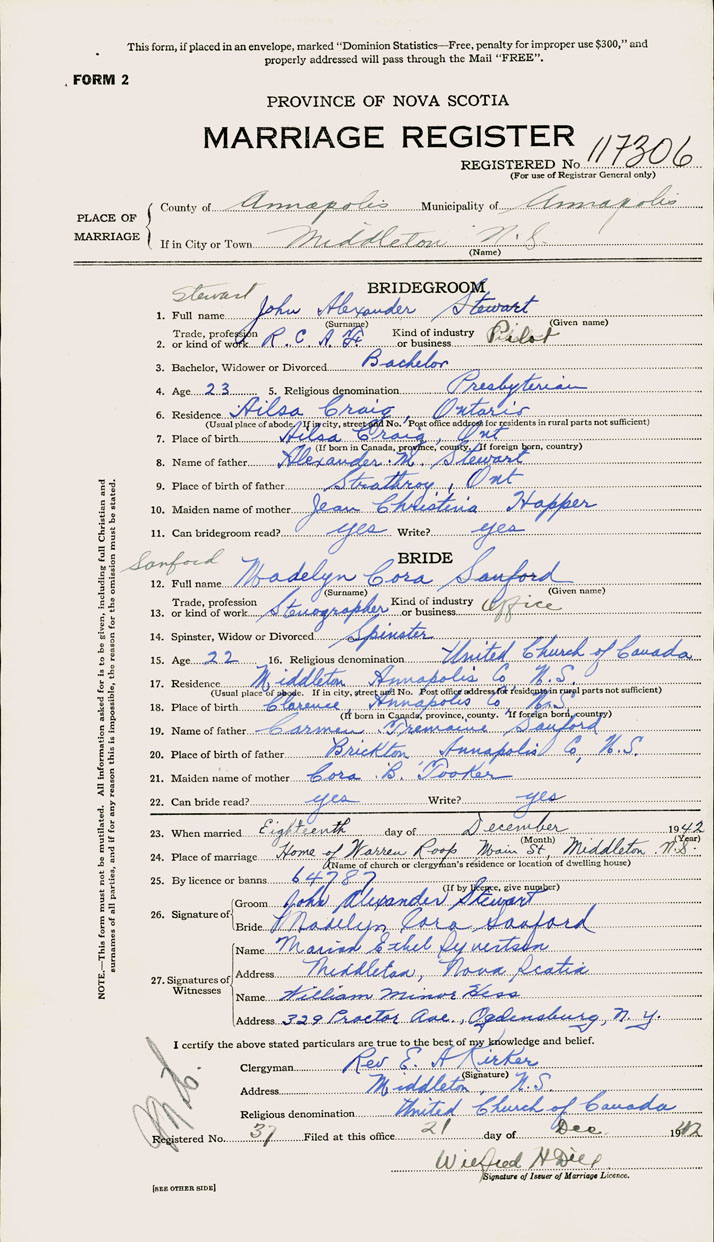 This form, if placed in an envelope, marked "Dominion Statistics—Free, penalty for improper use $300," and
properly addressed will pass through the Mail "FREE".
FORM 2
PROVINCE OF NOVA SCOTIA
MARRIAGE REGISTER
REGISTERED No. 117306
(For use of Registrar General only)
PLACE OF MARRIAGE
County of Annapolis Municipality of Annapolis
If in City or Town Middleton N.S.
(Name)
BRIDEGROOM
Stewart
1. Full name John Alexander Stewart
(Surname) (Given name)
2. Trade, profession or kind of work R.C.A.F. Kind of industry or business Pilot
3. Bachelor, Widower or Divorced Bachelor
4. Age 23 5. Religious denomination Presbyterian
6. Residence Ailsa Craig, Ontario
(Usual place of abode. If in city, street and No. Post office address for residents in rural parts not sufficient)
7. Place of birth Ailsa Craig, Ont
(If born in Canada, province, county. If foreign born, country)
8. Name of father Alexander M. Stewart
9. Place of birth of father Strathroy, Ont
10. Maiden name of mother Jean Christina Happer
11. Can bridegroom read? yes Write? yes
BRIDE
Sanford
12. Full name Madelyn Cora Sanford
(Surname) (Given name)
13. Trade, profession or kind of work Stenographer Kind of industry or business Office
14. Spinster, Widow or Divorced Spinster
15. Age 22 16. Religious denomination United Church of Canada
17. Residence Middleton Annapolis Co, N.S.
(Usual place of abode. If in city, street and No. Post office address for residents in rural parts not sufficient)
18. Place of birth Clarence, Annapolis Co N.S.
(If born in Canada, province, county. If foreign born, country)
19. Name of father Carmen Tremaine Sanford
20. Place of birth of father Brickton Annapolis Co, N.S.
21. Maiden name of mother Cora B. Tooker
22. Can bride read? yes Write? yes
23. When married Eighteenth day of December 1942
(Month) (Year)
24. Place of marriage Home of Warren Roop Main St, Middleton N.S.
(Name of church or clergyman's residence or location of dwelling house)
25. By licence or banns 64787
(If by licence, give number)
26. Signature of
Groom John Alexander Stewart
Bride Madelyn Cora Sanford
27. Signatures of Witnesses
Name Marion Ethel Syvertsen
Address Middleton, Nova Scotia
Name William Minor Hess
Address 329 Proctor Ave., Ogdensburg, N.Y.
I certify the above stated particulars are true to the best of my knowledge and belief.
Clergyman Rev E. A Kirker
(Signature)
Address Middleton, N.S.
Religious denomination United Church of Canada
Registered No. 37 Filed at this office 21 day of Dec. 1942
Wilfred H Dill
Signature of Issuer of Marriage Licence.
[SEE OTHER SIDE]
NOTE.—This form must not be mutilated. All information asked for is to be given, including full Christian and
surnames of all parties, and if for any reason this is impossible, the reason for the omission must be stated.